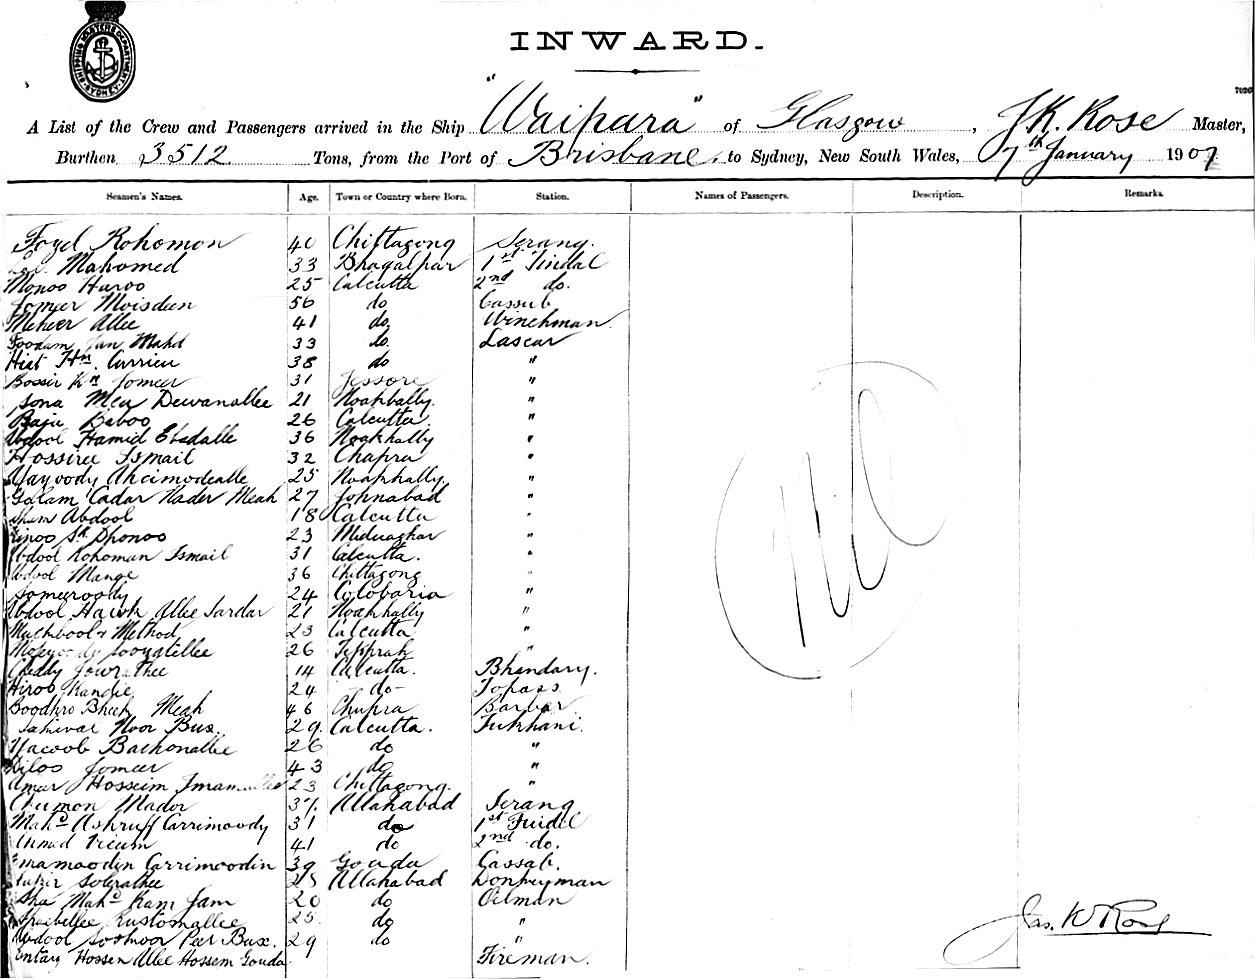 SHIPPING MASTERS DEPARTMENT SYDNEY
INWARD.
A List of the Crew and Passengers arrived in the Ship "Waipara" of Glasgow, J.K. Rose Master,
Burthen 3512 Tons, from the Port of Brisbane to Sydney, New South Wales, 7th January 1907
Seamen's Names. Age. Town or Country where Born. Station. Names of Passengers. Description. Remarks.
Foyel Rohomon 40 Chittagong Serang.
Mahomed 33 Bhagalpur 1st Tindal
Monoo Huroo 25 Calcutta 2nd do.
Jomeer Moisdeen 56 do Cassub
Meheer Allee 41 do Winchman
Foodam Jan Mahd 33 do. Lascar
Hiat Hn. Currieu 38 do "
Bossir Kn Jomeer 31 Jessore "
Sona Mea Dewanallee 21 Noakhally "
Baju Baboo 26 Calcutta "
Abdool Hamid Ebadalle 36 Noakhally "
Hossiree Ismail 32 Chapra "
25 Noakhally "
Golam Cadar Nader Meah 27 Johnabad "
Abdool 18 Calcutta "
Dhonoo 23 "
Abdool Rohoman Ismail 31 Calcutta. "
Abdool Mange 36 Chittagong "
Someeroody 24 Colobaria "
Abdool Hawk Allee Sardar 21 Noakhally "
Muchbool Method 23 Calcutta "
26 Tipprah "
Cheddy 14 Calcutta. Bhandary.
Hiroo Nandie 24 -do- Topass.
Boodhro Bheek Meah 46 Chupra Barbar
Noor Bux. 29. Calcutta. Tukhani.
Yacoob Bachonallee 26 do "
Diloo Jomeer 43 do "
Ameer Hosseim 23 Chittagong. "
Chumon Mador 37. Allahabad Serang
Mahd Ashruff Carrimoody 31 do 1st Tuidel
Ahmed 41 do 2nd do.
Emamoodin Carrimoodin 39 Gouda Cassab.
25 Allahabad Donkeyman
Sha Mahd Ram Jam 20 do Oilman
Rustomallee 25. do "
Abdool Peer Bux. 29 do "
Hossen Allee Hossem Gouda Fireman.
Nil
Jas. K Rose